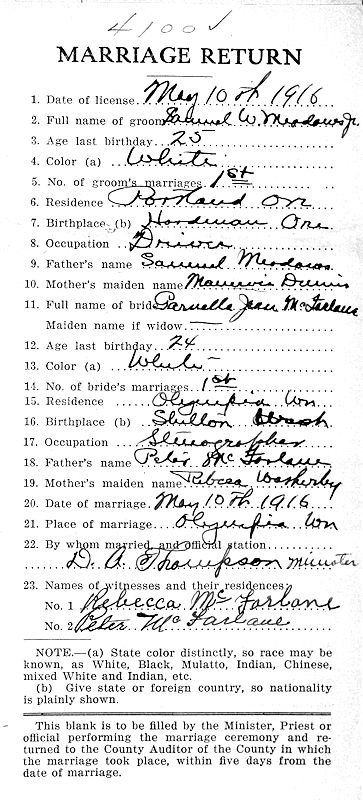 4100 ✓
MARRIAGE RETURN
1. Date of license. May 10th 1916
2. Full name of groom Samuel W. Meadows Jr.
3. Age last birthday 25
4. Color (a) White
5. No. of groom's marriages 1st
6. Residence Portland Or
7. Birthplace (b) Hardman Ore
8. Occupation Driver
9. Father's name Samuel Meadows
10. Mother's maiden name
11. Full name of bride Parnella Jean McFarlane
Maiden name if widow. —
12. Age last birthday 24
13. Color (a) White
14. No. of bride's marriages 1st
15. Residence Olympia Wn
16. Birthplace (b) Shelton Wash
17. Occupation Stenographer
18. Father's name Peter McFarlane
19. Mother's maiden name Rebecca
20. Date of marriage May 10th 1916
21. Place of marriage Olympia Wn
22. By whom married, and official station
D. A. Thompson minister
23. Names of witnesses and their residences
No. 1 Rebecca McFarlane
No. 2 Peter McFarlane
NOTE.—(a) State color distinctly, so race may be
known, as White, Black, Mulatto, Indian, Chinese,
mixed White and Indian, etc.
(b) Give state or foreign country, so nationality
is plainly shown.
This blank is to be filled by the Minister, Priest or
official performing the marriage ceremony and re-
turned to the County Auditor of the County in which
the marriage took place, within five days from the
date of marriage.